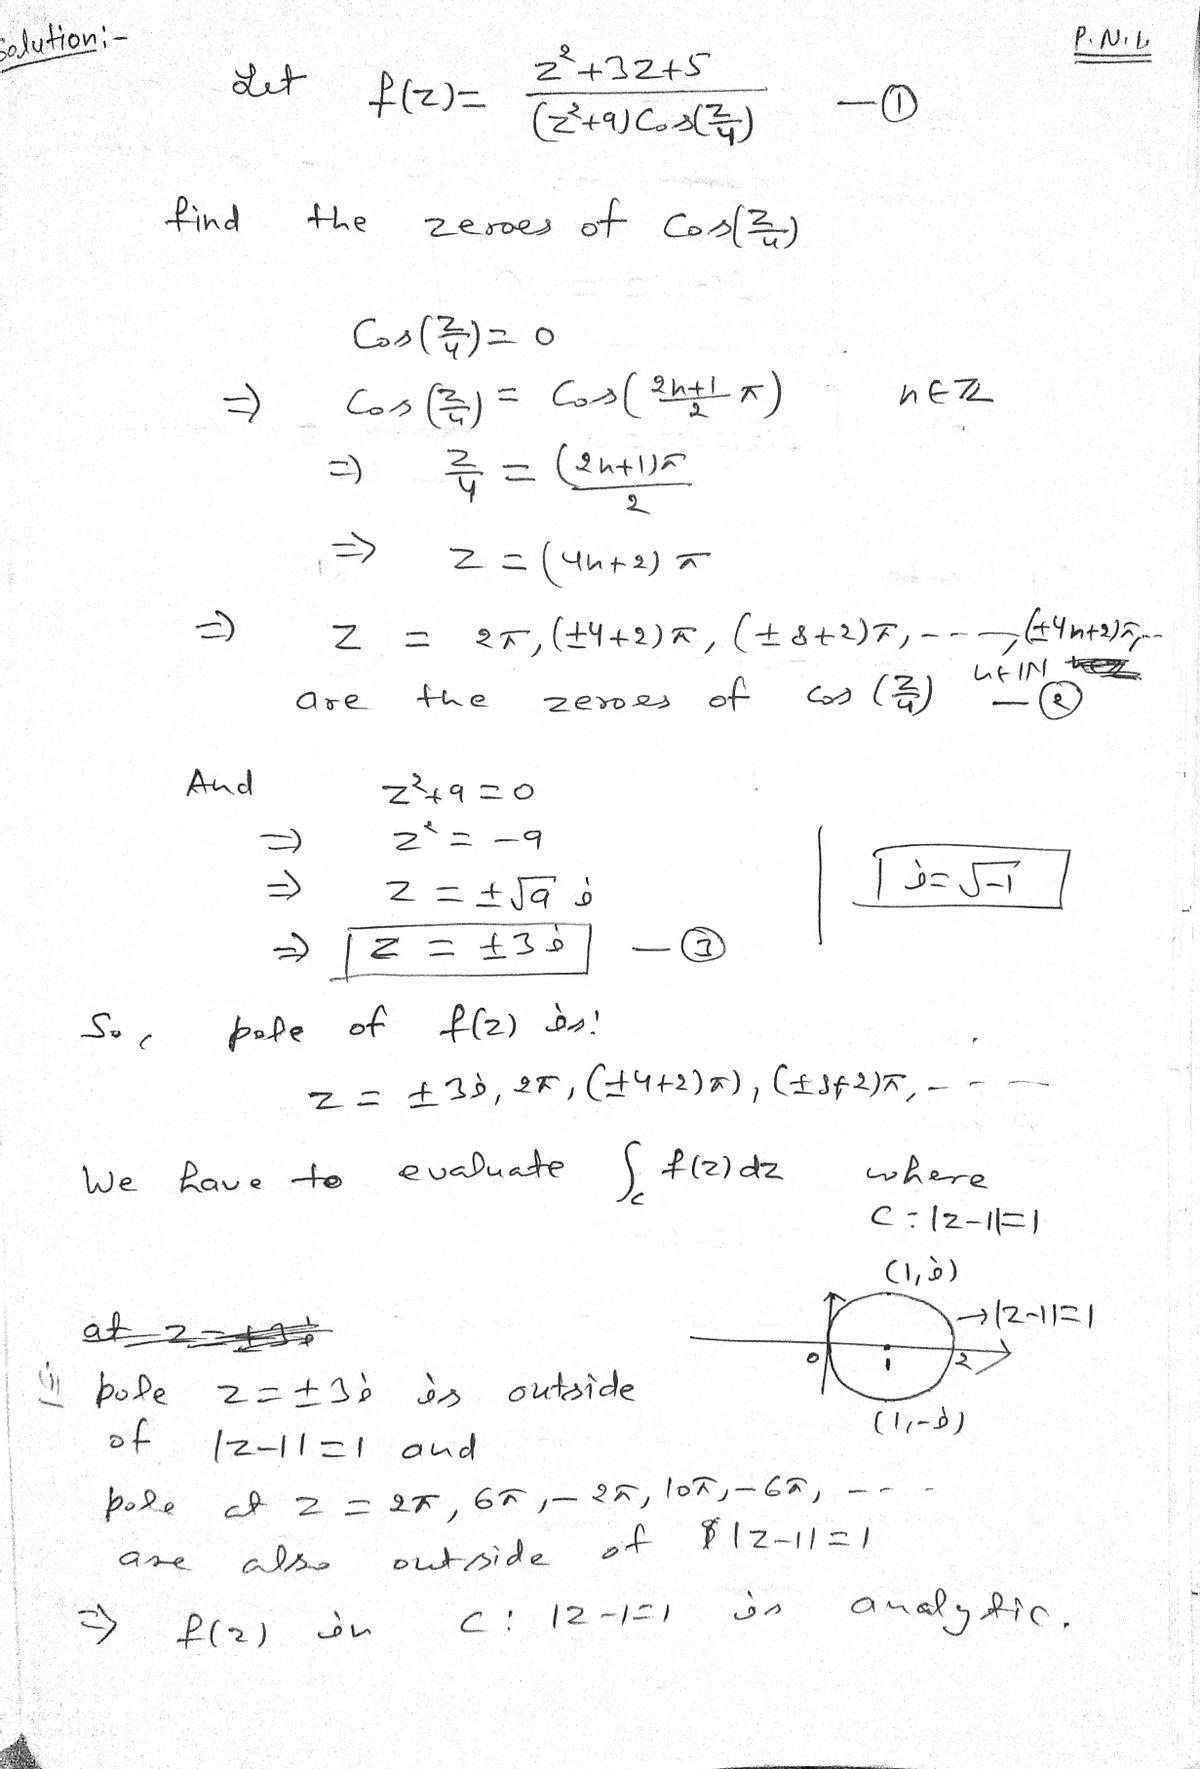 Solution:-
P.N.1.
Let f(z) = (z²+3z+5)/((z²+9)Cos(z/4)) —①
find the zeroes of Cos(z/4)
Cos(z/4) = 0
⇒ Cos(z/4) = Cos((2n+1)/2 π) n∈ℤ
⇒ z/4 = (2n+1)π/2
⇒ z = (4n+2)π
⇒ z = 2π, (±4+2)π, (±8+2)π, ----, (±4n+2)π,--
n∈IN
are the zeroes of cos(z/4) —②
And z²+9=0
⇒ z² = -9
⇒ z = ±√9 i
i=√-1
⇒ z = ±3i —③
So, pole of f(z) is:
z = ±3i, 2π, (±4+2)π), (±8+2)π, ----
We have to evaluate ∫c f(z)dz where
C:|z-1|=1
(1,i)
→|z-1|=1
0 1 2
(1,-i)
pole z=±3i is outside
of |z-1|=1 and
pole at z = 2π, 6π, -2π, 10π, -6π, ----
are also outside of |z-1|=1
⇒ f(z) in C: |z-1=1 is analytic.